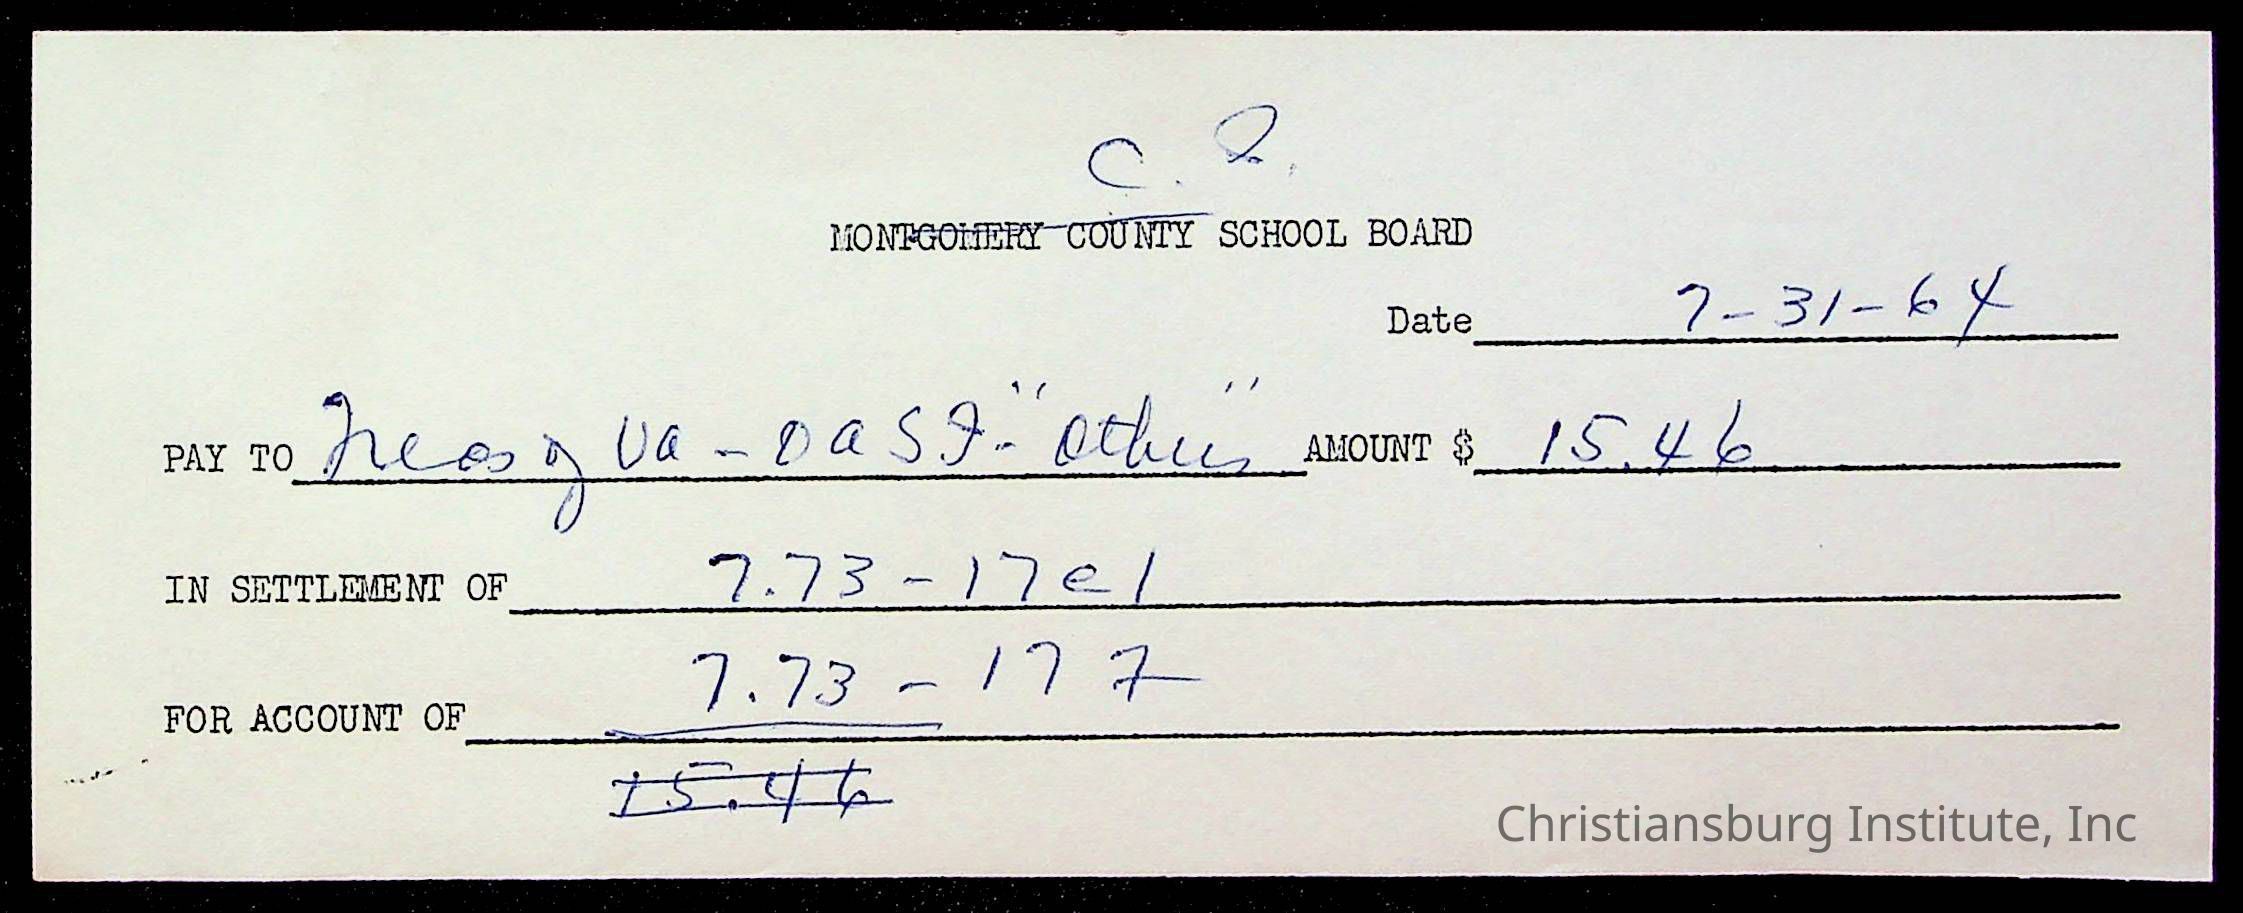 C. I.
MONTGOMERY COUNTY SCHOOL BOARD
Date 7-31-64
PAY TO Treas of Va - OASI - "Other" AMOUNT $ 15.46
IN SETTLEMENT OF 7.73 - 17e1
7.73 - 17 7
FOR ACCOUNT OF
15.46
Christiansburg Institute, Inc